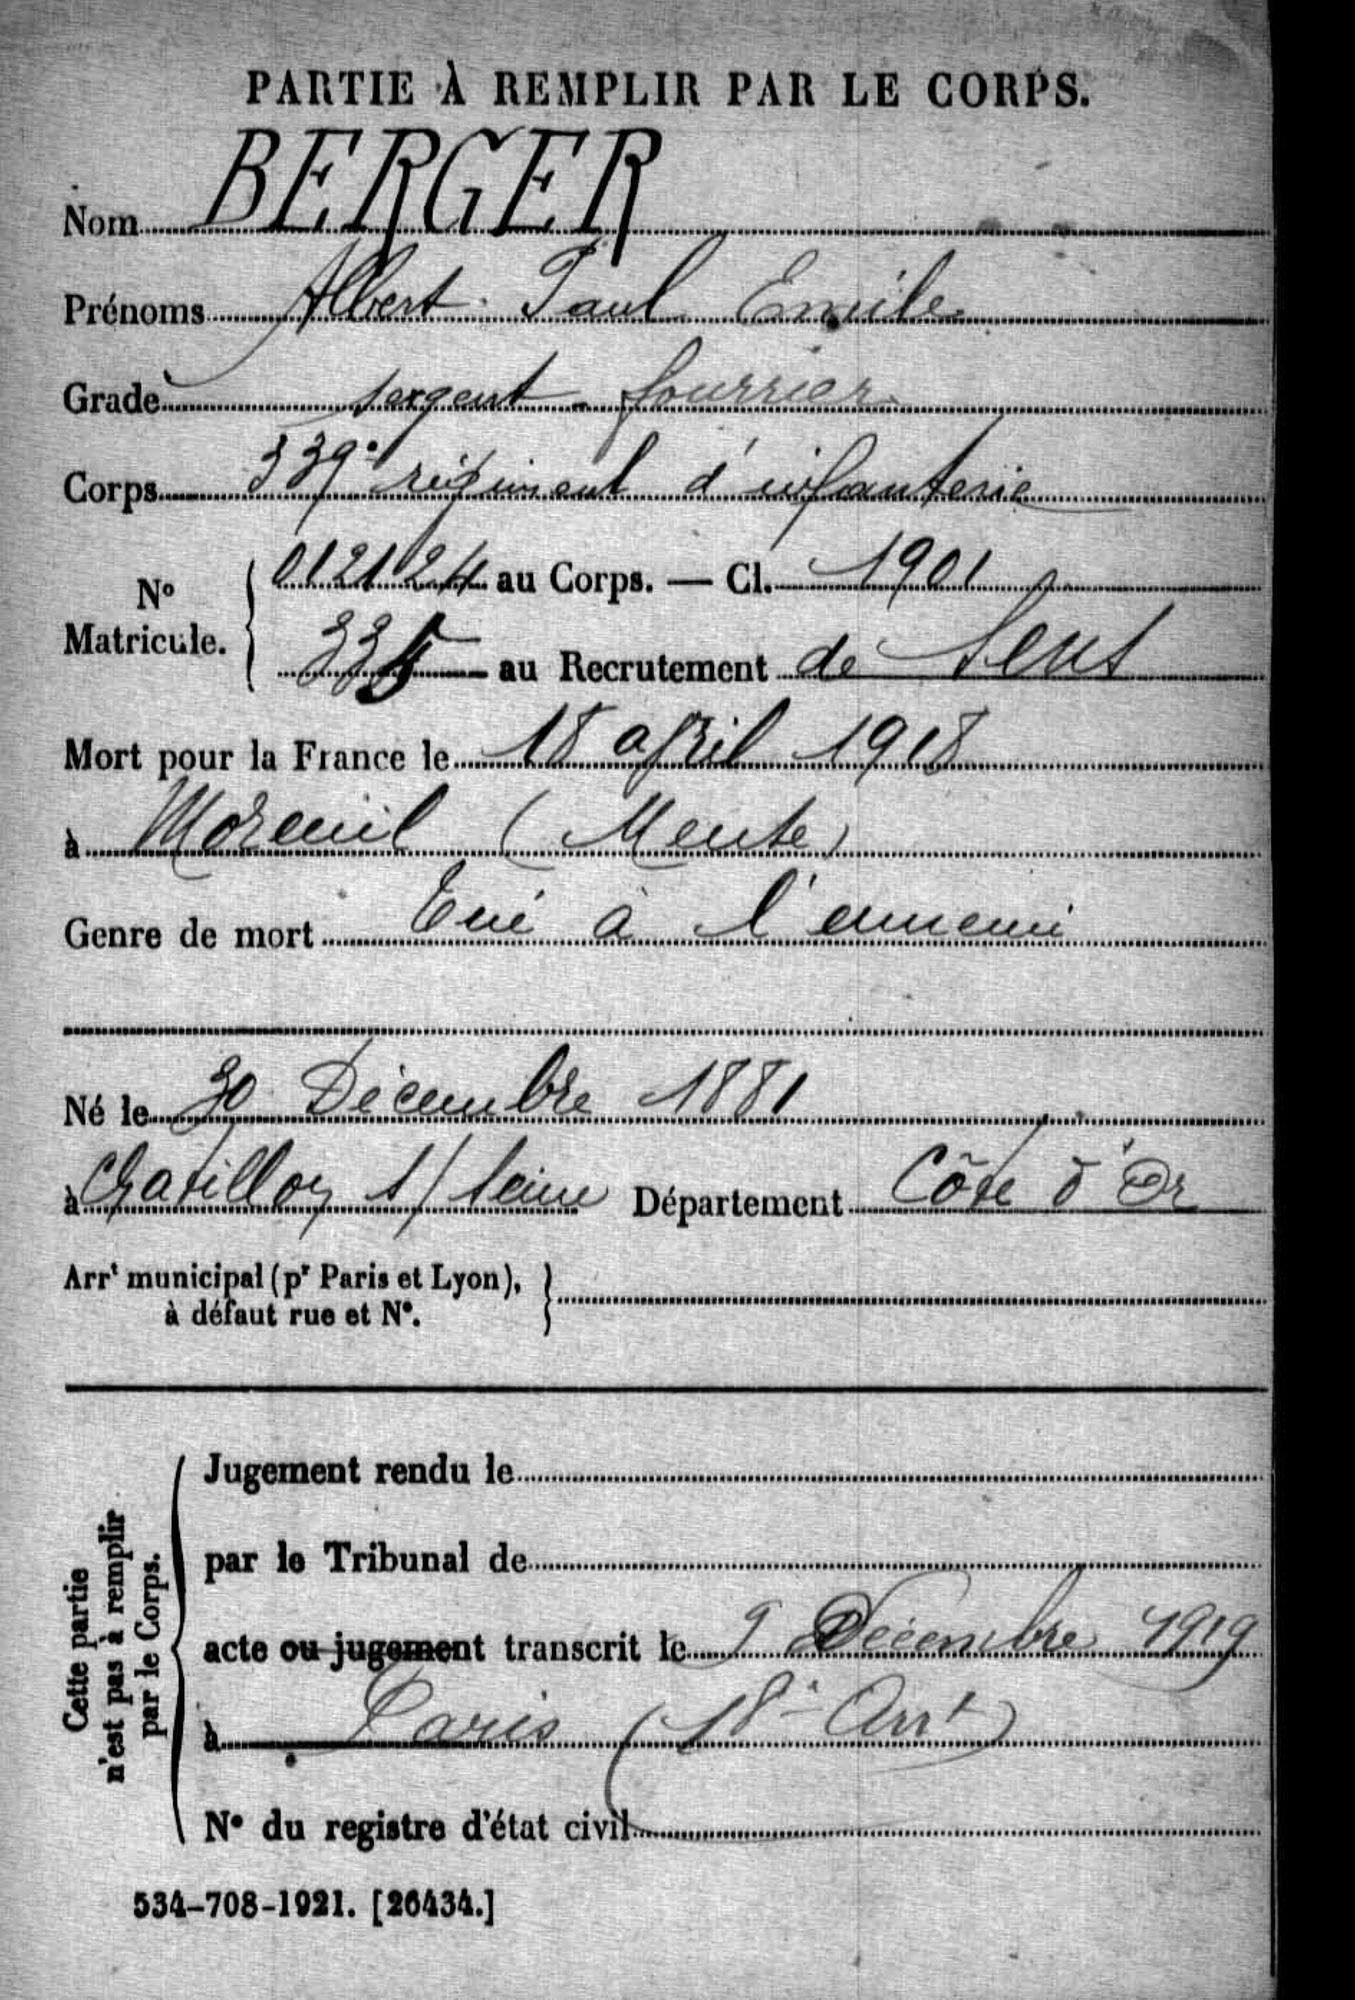 PARTIE À REMPLIR PAR LE CORPS.
Nom BERGER
Prénoms Albert Paul Emile
Grade sergent-fourrier
Corps 339e régiment d'infanterie
No Matricule. 012124 au Corps. — Cl. 1901
335 au Recrutement de Sens
Mort pour la France le 18 april 1918
à Moreuil (Meuse)
Genre de mort Tué à l'ennemi
Né le 30 Décembre 1881
à Chatillon s/ Seine Département Côte d'Or
Arrt municipal (pr Paris et Lyon),
à défaut rue et No.
Cette partie
n'est pas à remplir
par le Corps.
Jugement rendu le
par le Tribunal de
acte ou jugement transcrit le 9 Décembre 1919
à Paris (18e Arrt)
No du registre d'état civil
534-708-1921. [26434.]